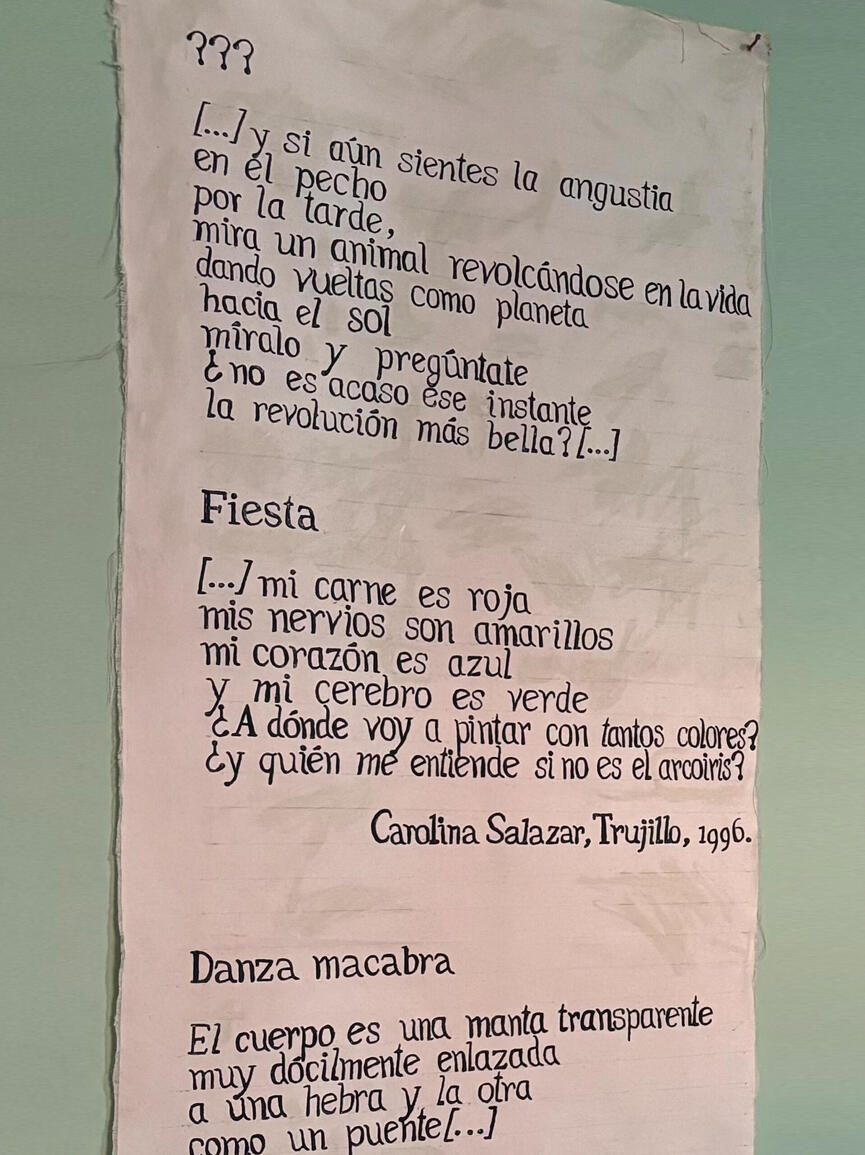 ???
[...] y si aún sientes la angustia
en el pecho
por la tarde,
mira un animal revolcándose en la vida
dando vueltas como planeta
hacia el sol
míralo y pregúntate
¿no es acaso ese instante
la revolución más bella? [...]
Fiesta
[...] mi carne es roja
mis nervios son amarillos
mi corazón es azul
y mi cerebro es verde
¿A dónde voy a pintar con tantos colores?
¿y quién me entiende si no es el arcoiris?
Carolina Salazar, Trujillo, 1996.
Danza macabra
El cuerpo es una manta transparente
muy dócilmente enlazada
a una hebra y la otra
como un puente [...]